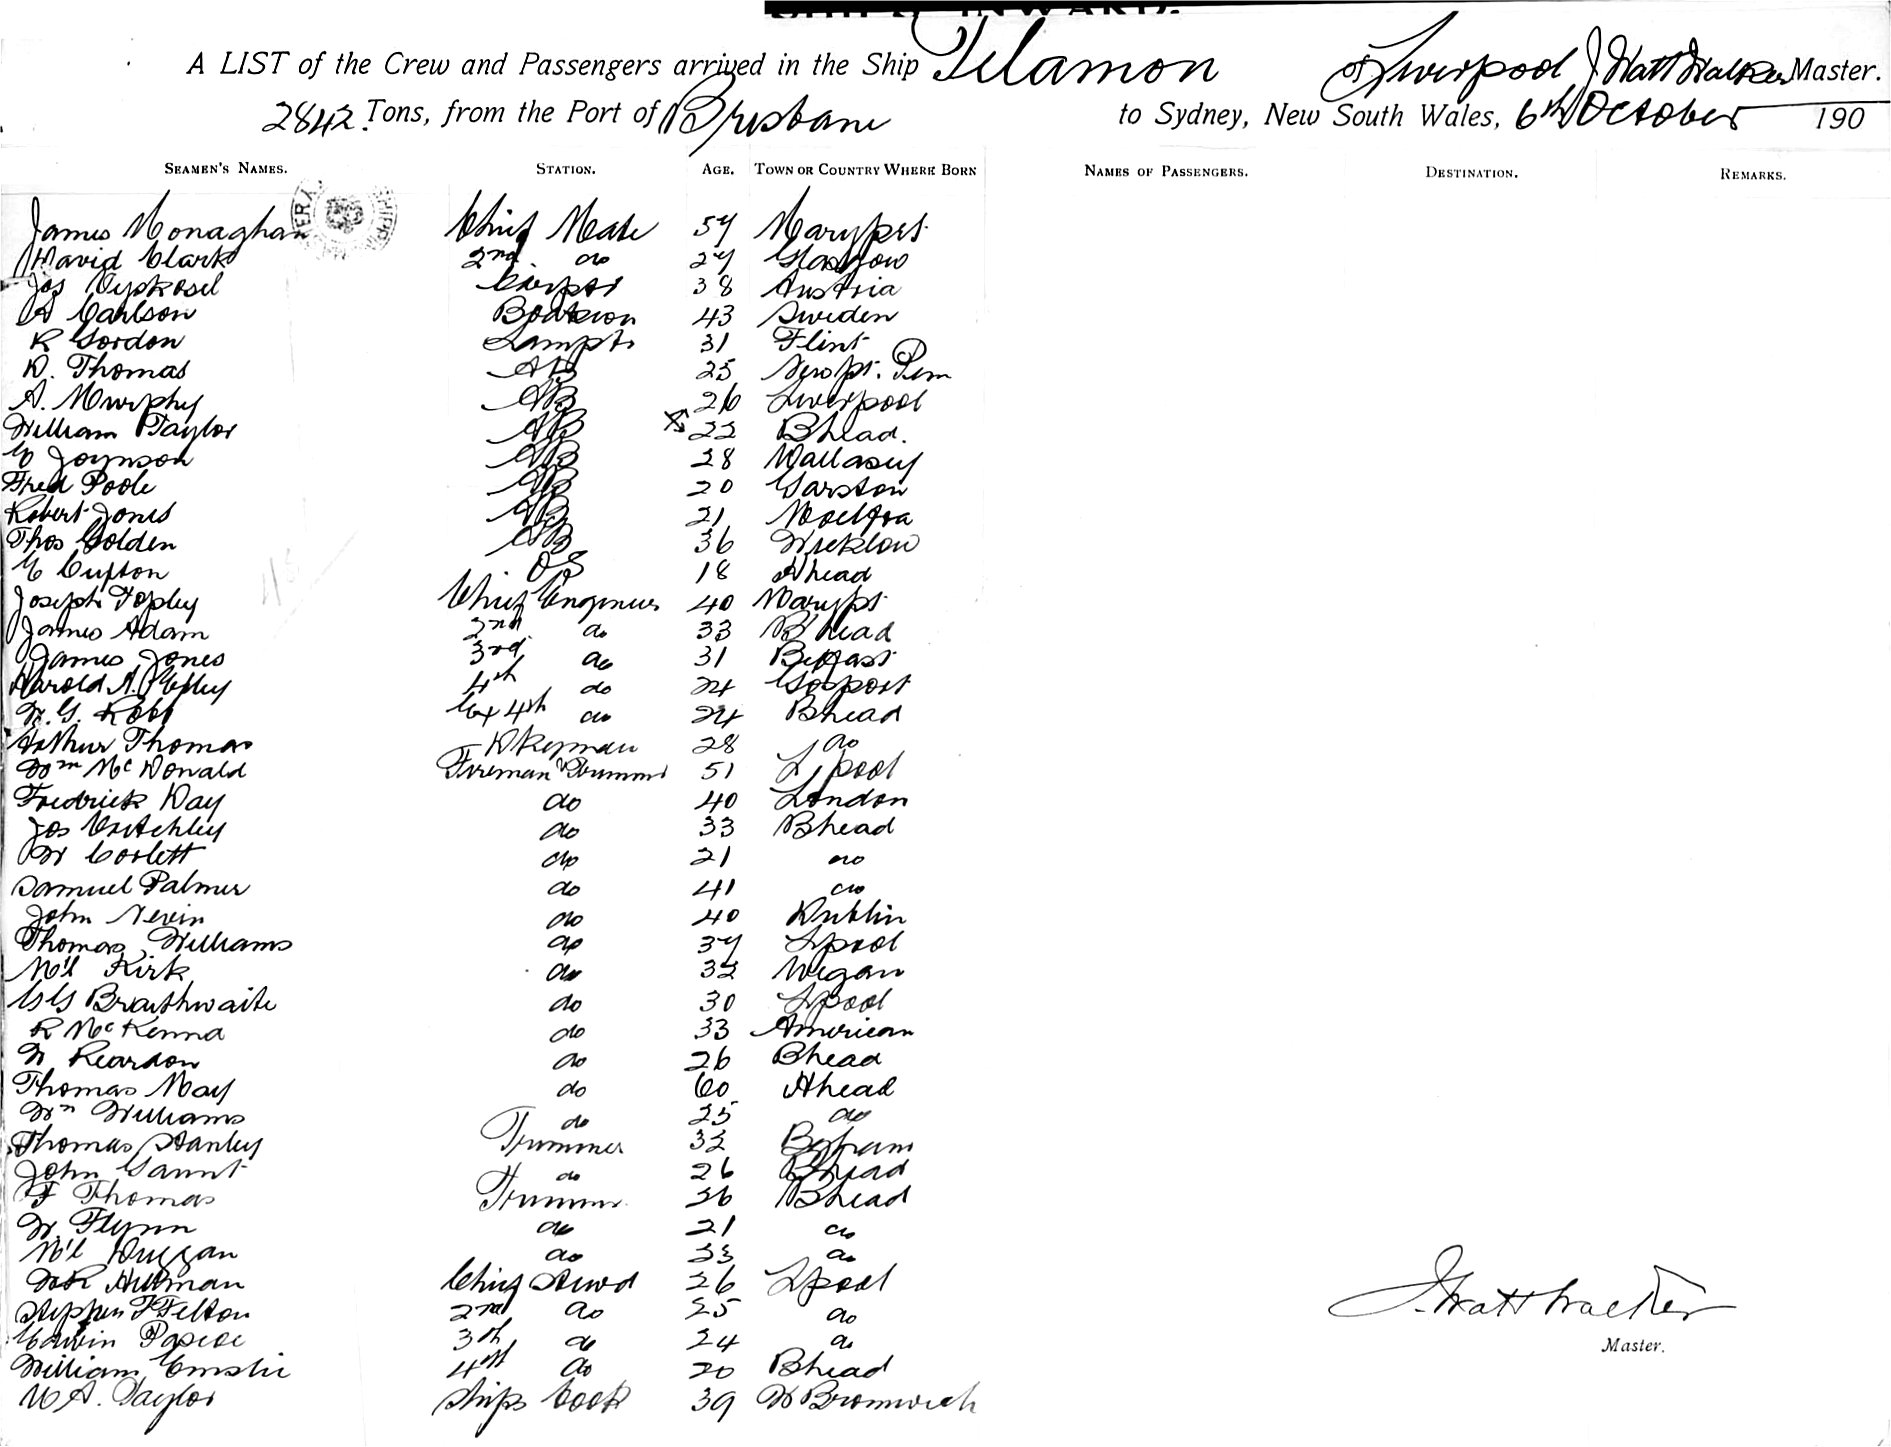 SHIPS INWARD.
A LIST of the Crew and Passengers arrived in the Ship Telamon of Liverpool J. Watt Walker Master.
2842 Tons, from the Port of Brisbane to Sydney, New South Wales, 6th October 190
SEAMEN'S NAMES. STATION. AGE. TOWN OR COUNTRY WHERE BORN NAMES OF PASSENGERS. DESTINATION. REMARKS.
James Monaghan Chief Mate 57 Marypt
David Clark 2nd do 27 Glasgow
Jos 38 Austria
A Carlson Boatswn 43 Sweden
R Gordon Lampts 31 Flint
D. Thomas AB 25 Newpt. Pem
A. Murphy AB 26 Liverpool
William Taylor AB 22 Bhead.
Joynson AB 28 Wallasey
Fred Poole AB 20 Garston
Robert Jones AB 21 Moelfra
Thos Golden AB 36 Wicklow
OS 18 Ahead
Joseph Topley Chief Engineer 40 Marypt
James Adam 2nd do 33 B'head
James Jones 3rd do 31 Belfast
Harold A. 4th do 24 Gosport
W. G. Robb Ex 4th do 24 Bhead
Arthur Thomas Dkeyman 28 do
Wm McDonald Fireman & Trimmer 51 L'pool
Fredrick Day do 40 London
Jos Critchley do 33 Bhead
W Corlett do 21 do
Samuel Palmer do 41 do
John Nevin do 40 Dublin
Thomas Williams do 37 Lpool
M'l Kirk do 32 Wigan
Braithwaite do 30 Lpool
R McKenna do 33 American
W Reardon do 26 Bhead
Thomas May do 60 Ahead
Wm Williams do 25 do
Thomas Stanley Trimmer 32
John Gaunt do 26 Bhead
F Thomas Trimmer 36 Bhead
W. Flynn do 21 do
M'l Duggan do 33 do
Chief Stwd 26 Lpool
Stephen F Felton 2nd do 25 do
Edwin Pascoe 3th do 24 do
William Emslie 4th do 20 Bhead
W A. Taylor Ships Cook 39 W Bromwich
J. Watt Walker
Master.